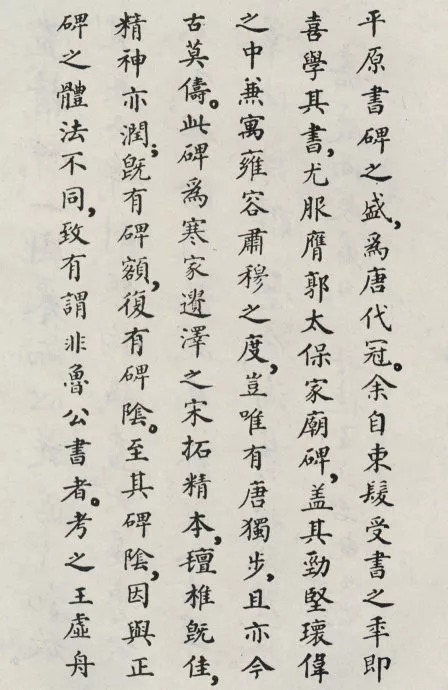 平原書碑之盛,爲唐代冠。余自束髮受書之秊即
喜學其書,尤服膺郭太保家廟碑,盖其勁堅瓌偉
之中兼寓雍容肅穆之度,豈唯有唐獨步,且亦今
古莫儔。此碑爲寒家遺澤之宋拓精本,氊椎旣佳,
精神亦潤;旣有碑額,復有碑陰。至其碑陰,因與正
碑之體法不同,致有謂非魯公書者。考之王虛舟